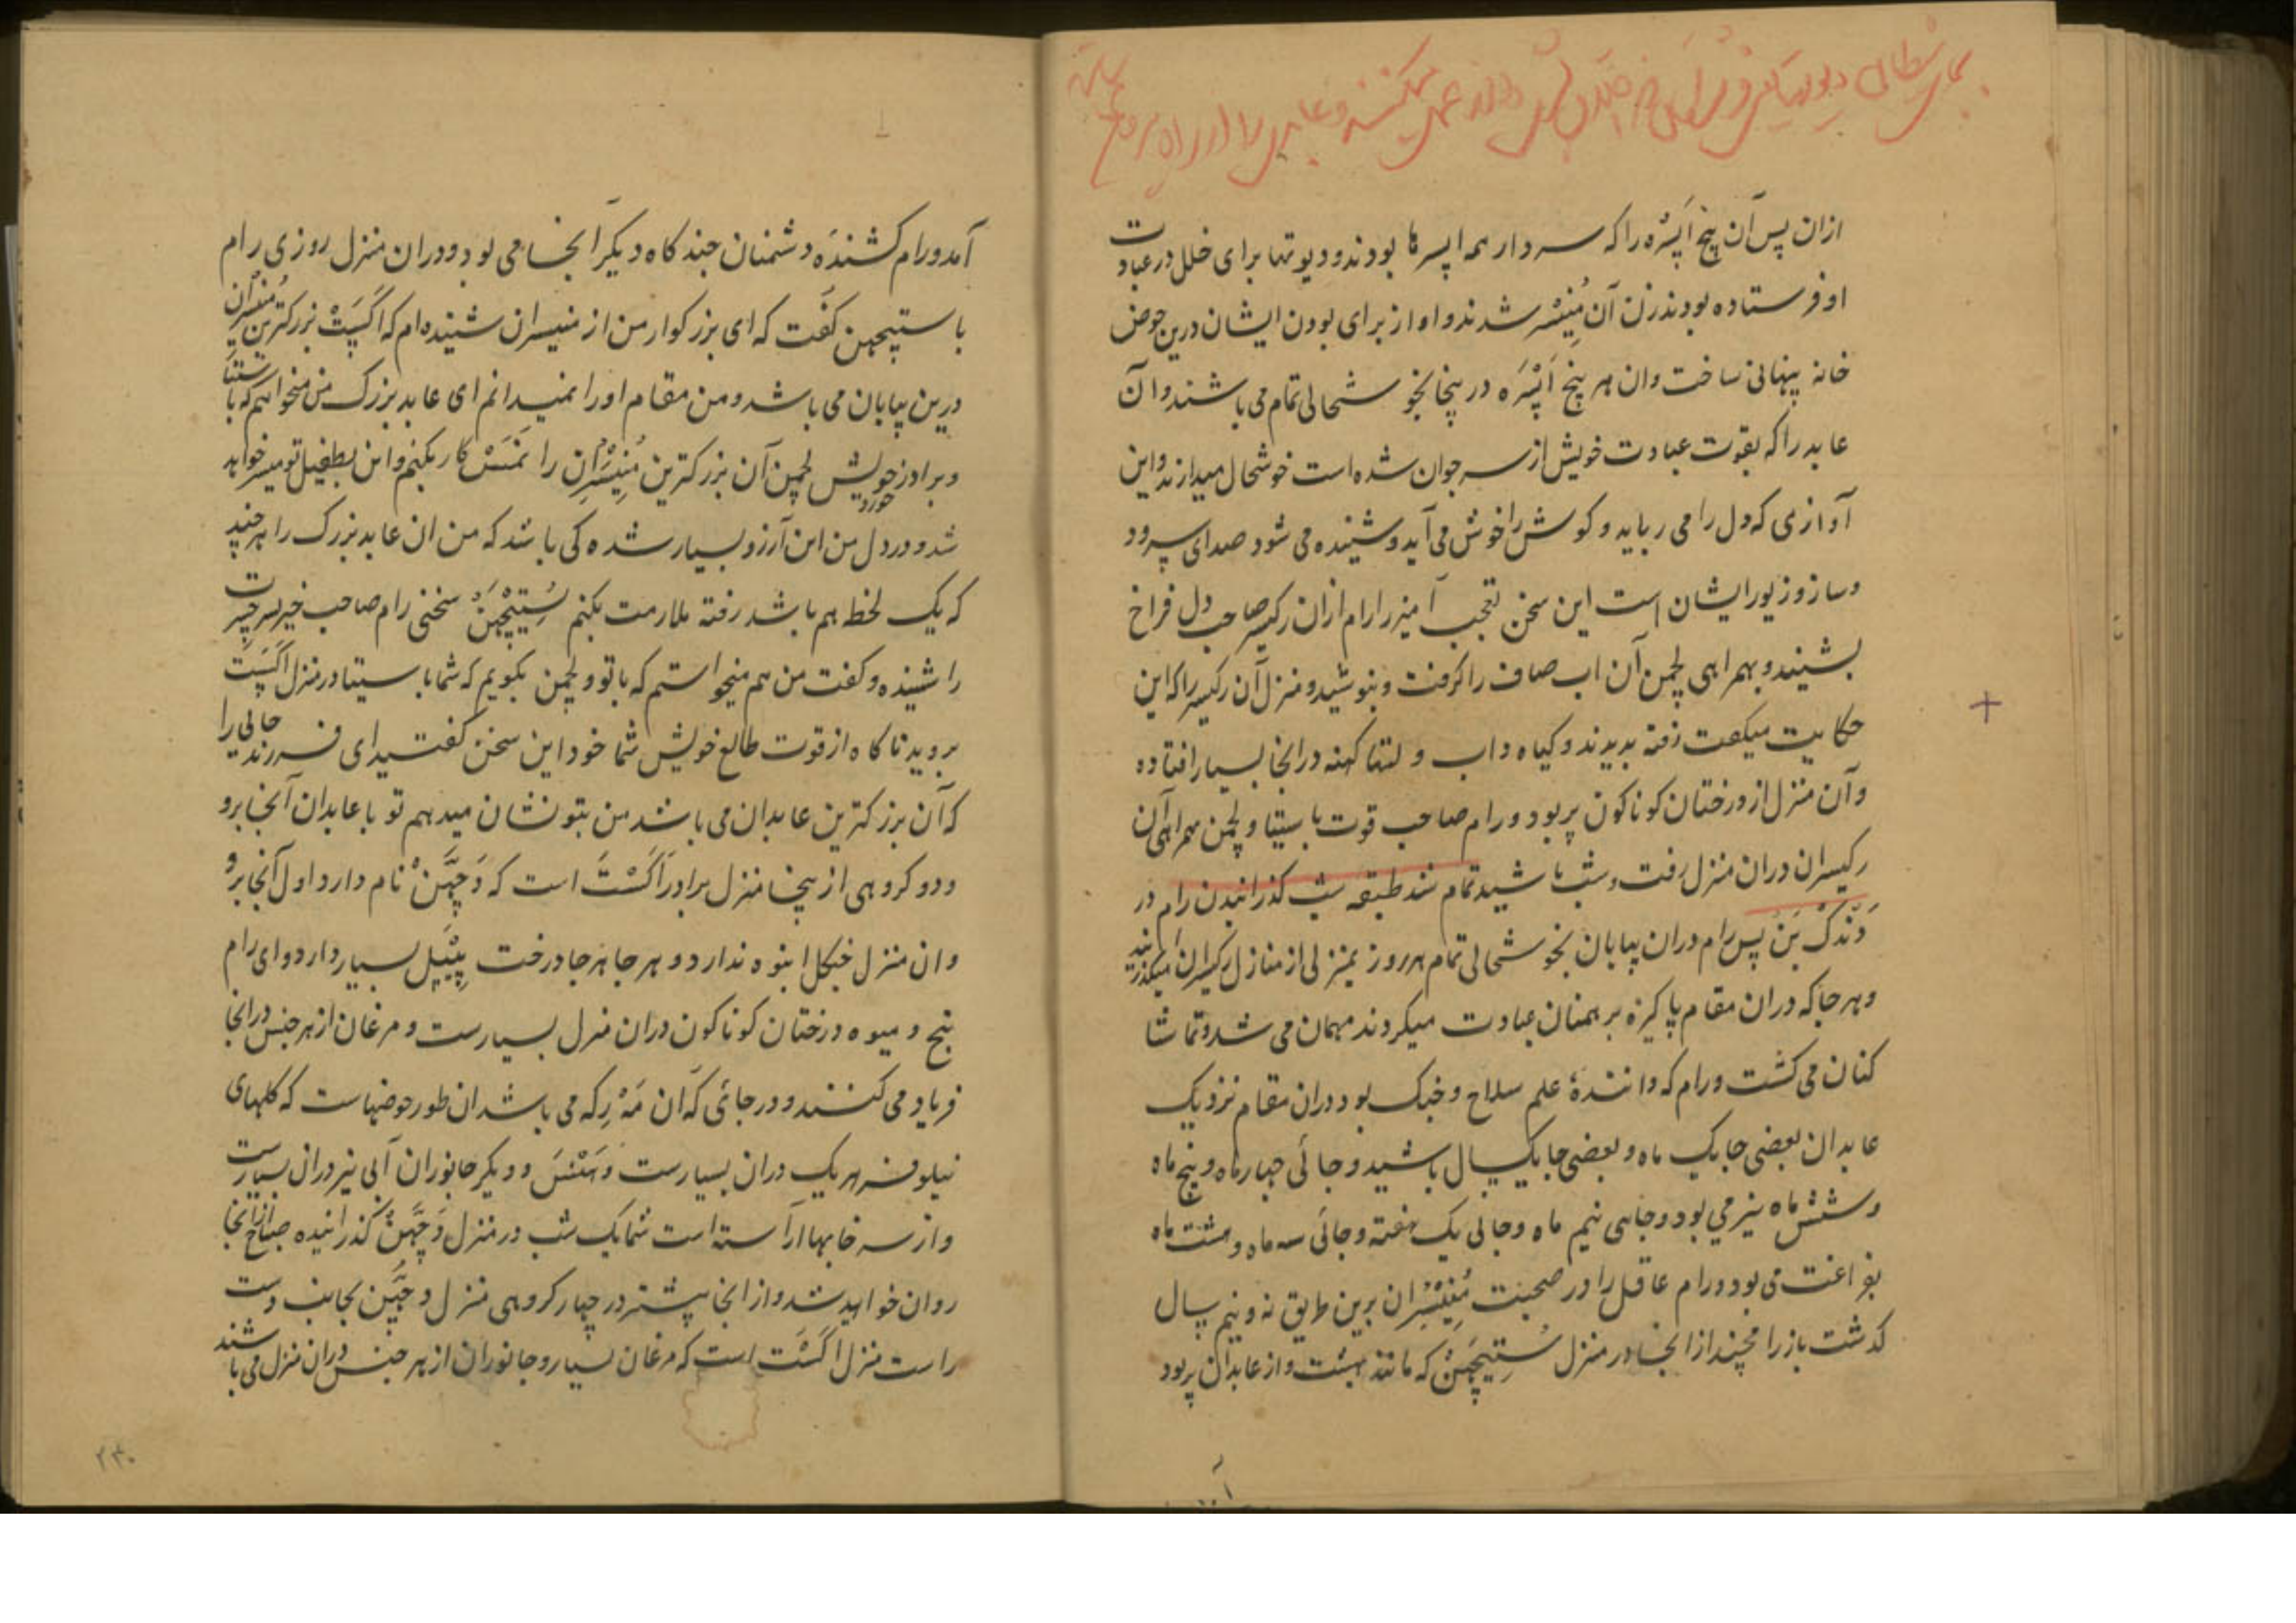 ازان پس آن پنج اَپسَرَه را که سردار همه اپسرها بودند و دیوتها برای خلل در عبادت
او فرستاده بودند زن آن مُنِیسَر شدند و او از برای بودن ایشان درین حوض
خانه پنهانی ساخت و ان هر پنج اَپْسَرَه در پنجا بخوشحالی تمام می باشند و آن
عابد را که بقوت عبادت خویش از سر جوان شده است خوشحال میدارند و این
آوازی که دل را می رباید و کوش را خوش می آید و شنیده می شود صدای سرود
و ساز و زیور ایشان است این سخن تعجب آمیز را رام ازان رکیسر صاحب دل فراخ
بشنید و بهمراهی لچمن آن اب صاف را کرفت و بنوشید و منزل آن رکیسر را که این
حکایت میکفت رفته بدیدند و کیاه داب و لتها کهنه در انجا بسیار افتاده
و آن منزل از درختان کوناکون پر بود و رام صاحب قوت با سیتا و لچمن همراهی آن
رکیسران دران منزل رفت و شب باشید تمام شد طبقه شب کذرانیدن رام در
دَنْدَک بَن پس رام دران بیابان بخوشحالی تمام هر روز بمنزلی از منازل رکیسران میکذرانید
و هر جا که دران مقام پاکیزه برهمنان عبادت میکردند مهمان می شد و تماشا
کنان می کشت و رام که دانندهٔ علم سلاح و جنک بود دران مقام نزدیک
عابدان بعضی جا یک ماه و بعضی جا یکسال باشید و جائی چهار ماه و پنج ماه
و شش ماه نیز می بود و جاهی نیم ماه و جائی یک هفته و جائی سه ماه و هشت ماه
بفراغت می بود و رام عاقل را در صحبت مُنِیسَران برین طریق نه و نیم سال
کذشت باز رامچند از انجا در منزل سُتِیچَهَن که مانند بهشت و از عابدان پر بود
آمد و رام کشندهٔ دشمنان چند کاه دیکر آنجا می بود و دران منزل روزی رام
با ستیچهن کفت که ای بزرکوار من از منیسران شنیده ام که اَکَسْت بزرکترین مُنِیسَران
درین بیابان می باشد و من مقام او را نمیدانم ای عابد بزرک من میخواهم که با سیتا
و برادر خورد خویش لچمن آن بزرکترین مُنِیسَران را نَمَسْ کار بکنم و این بطفیل تو میسر خواهد
شد و در دل من این آرزو بسیار شده کی باشد که من ان عابد بزرک را هر چند
که یک لحظ هم باشد رفته ملازمت بکنم سُتِیچَهَن سخن رام صاحب خیر
را شنیده و کفت من هم میخواستم که با تو و لچمن بکویم که شما با سیتا در منزل اَکَسْت
بروید ناکاه از قوت طالع خویش شما خود این سخن کفتید ای فرزند جائی را
که آن بزرکترین عابدان می باشد من بتو نشان میدهم تو با عابدان آنجا برو
و دو کروهی از ینجا منزل برادر اَکَسْت است که دَجَهَنْ نام دارد اول آنجا برو
و ان منزل جنکل انبوه ندارد و هر جا هر جا درخت پِیْپَل بسیار دارد و ای رام
بیخ و میوه درختان کوناکون دران منزل بسیارست و مرغان از هر جنس در انجا
فریاد می کنند و در جائی که آن می باشد ان طور حوضهاست که کلهای
نیلوفر هر یک دران بسیارست و هَنْسَ و دیکر جانوران آبی نیز دران بسیارست
و از سرخابها آراسته است شما یک شب در منزل دَجَهَنْ کذرانیده صباح از انجا
روان خواهید شد و از انجا پیشتر در چهار کروهی منزل دجَهَن بجانب دست
راست منزل اَکَسْت است که مرغان بسیار و جانوران از هر جنس دران منزل می باشند
۲۳۰